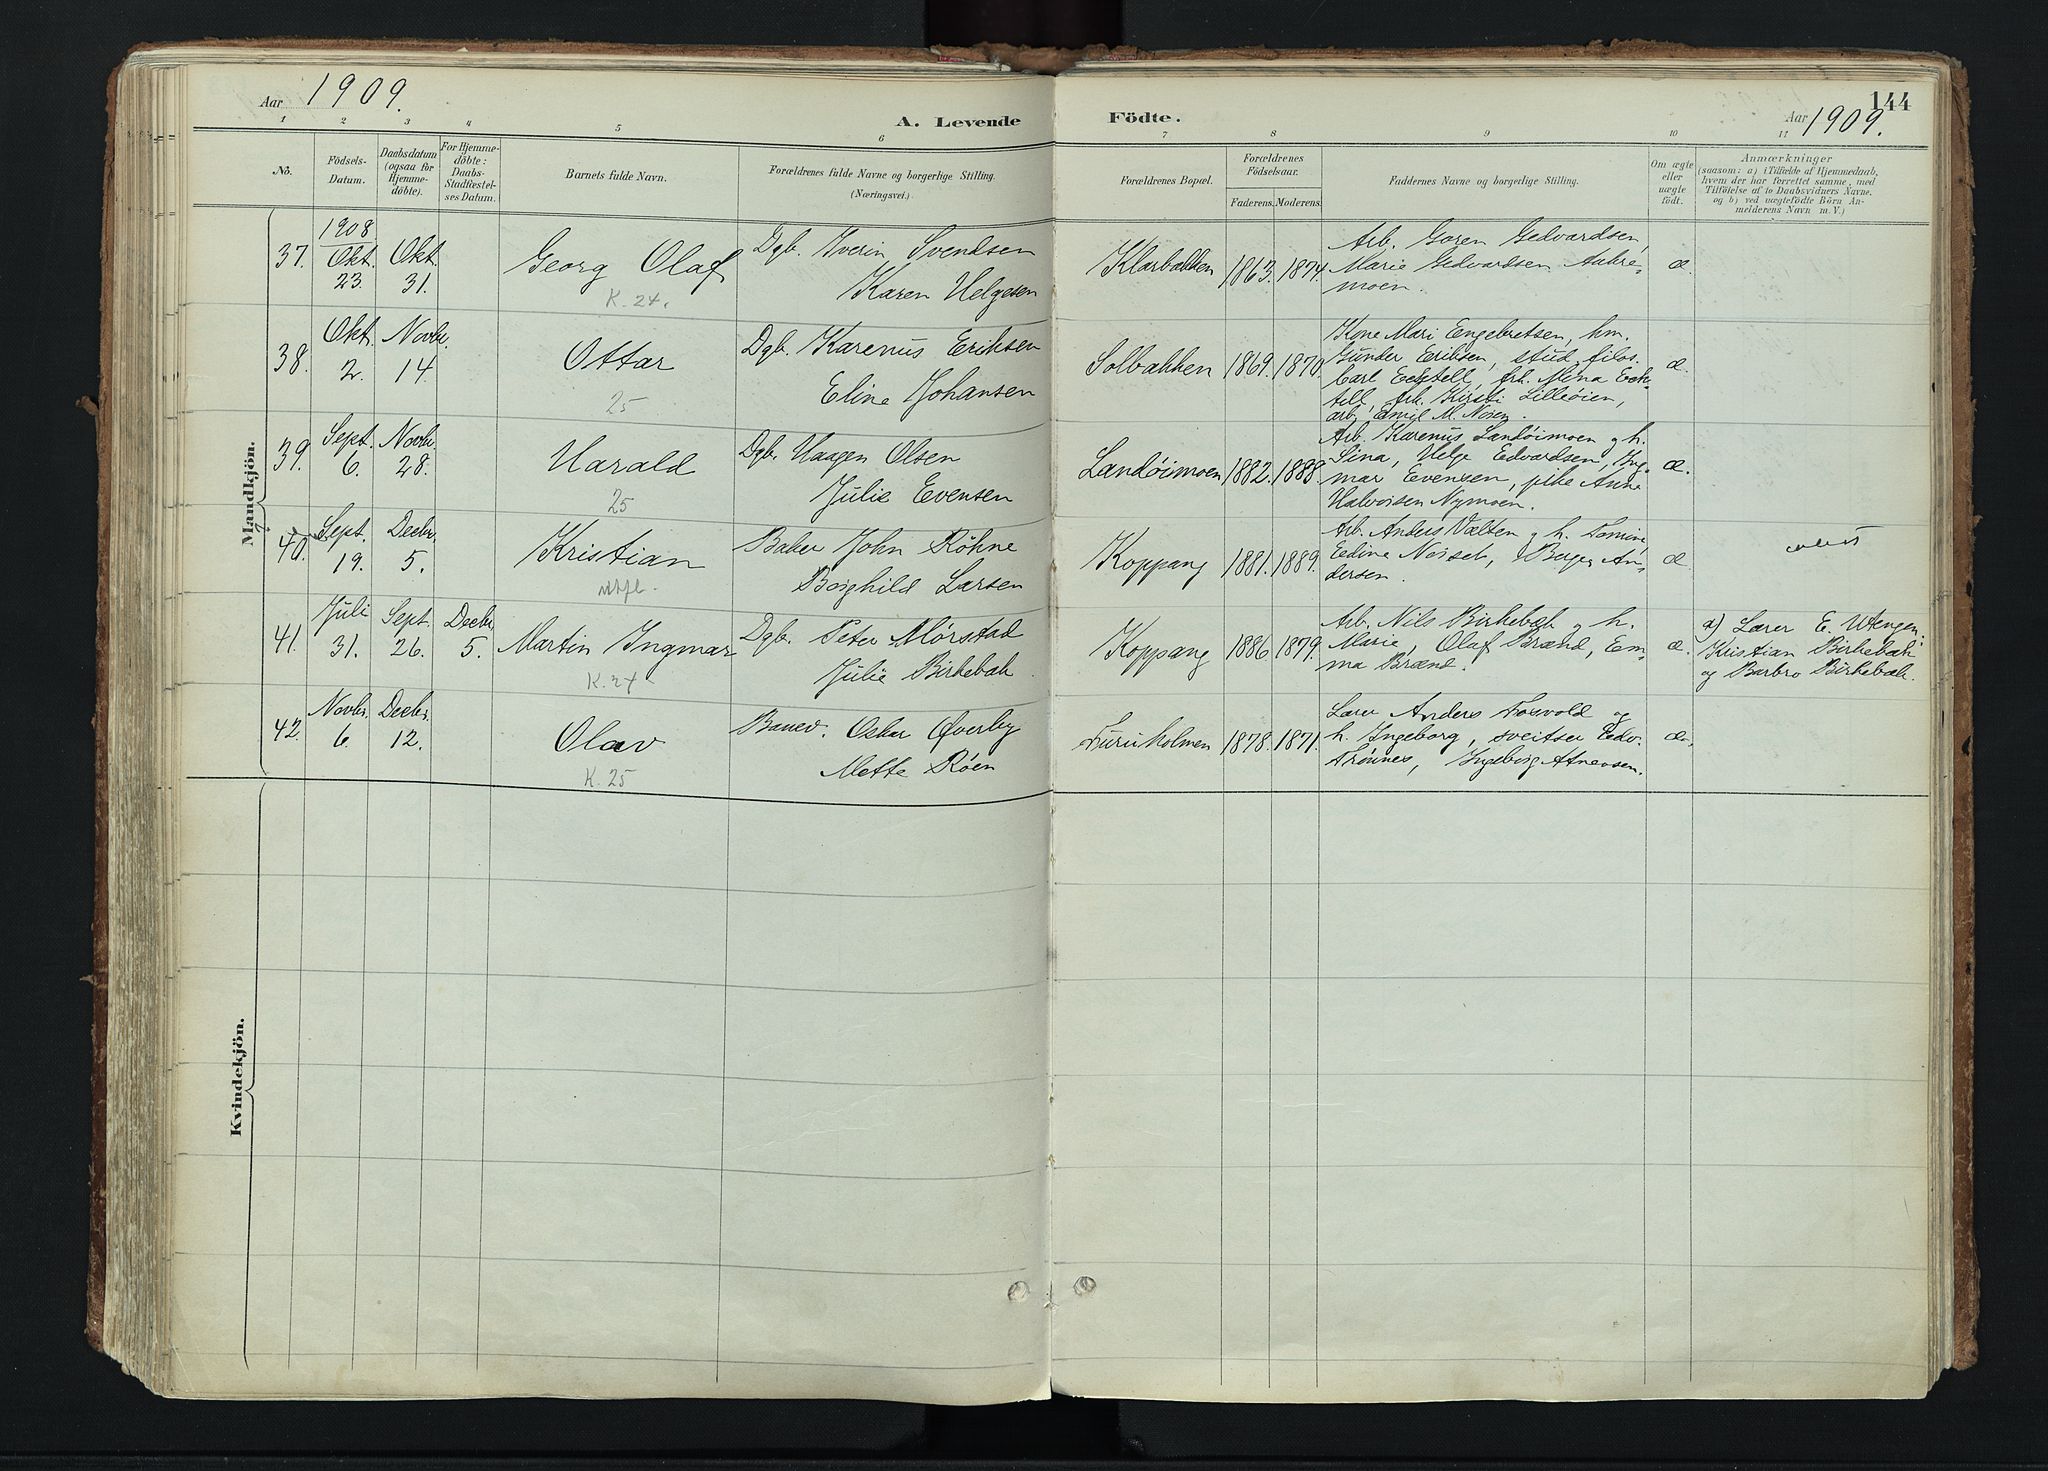 Aar 1909.
A. Levende Födte.
144
Aar 1909.
1 2 3 4 5 6 7 8 9 10 11
No.
Födsels-Datum.
Daabsdatum (ogsaa for Hjemme-döbte).
For Hjemme-döbte: Daabs-Stadfæstel-ses Datum.
Barnets fulde Navn.
Forældrenes fulde Navne og borgerlige Stilling.
(Næringsvei.)
Forældrenes Bopæl.
Forældrenes Födselsaar.
Faderens. Moderens.
Faddernes Navne og borgerlige Stilling.
Om ægte eller uægte födt.
Anmærkninger
(saasom: a) i Tilfælde af Hjemmedaab,
hvem der har forrettet samme, med
Tilföielse af to Daabsvidners Navne,
og b) ved uægtefödte Börn An-
melderens Navn m. V.)
Mandkjön.
37. 1908 Okt. 23. Okt. 31. Georg Olaf K. 24. Dgb. Iverin Svendsen
Karen Helgesen
Klarbakken 1863. 1874.
Arb. Goren Gedvardsen,
Marie Gedvardsen Aakre-
moen.
æ
38. Okt. 2. Novbr. 14. Ottar 25 Dgb. Karenus Eriksen
Eline Johansen
Solbakken 1869. 1870.
Kone Mari Engebretsen, hm.
Gunder Eriksen, stud. filos.
Carl Ecktell, frk. Mina Eck-
tell, frk. Kirsti Lilleøien,
arb. Emil M. Noren.
æ.
39. Sept. 6. Novbr. 28. Harald 25 Dgb. Haagen Olsen
Julie Evensen
Landøimoen 1882. 1888.
Arb. Karenus Landøimoen og h.
Sina, Helge Edvardsen, Ing-
mar Evensen, pike Anne
Halvorsen Nymoen.
æ.
40. Sept. 19. Decbr. 5. Kristian Baker John Røhne
Borghild Larsen
Koppang 1881. 1889.
Arb. Anders Valten og h. Tomine,
Edine Neiset, Berger An-
dersen.
æ
41. Juli 31. Sept. 26. Decbr. 5. Martin Ingmar K. 24 Dgb. Peter Mørstad
Julie Birkebæk
Koppang 1886 1879.
Arb. Nils Birkebæk og h.
Marie, Olaf Brænd, Em-
ma Brænd.
æ.
a) Lærer E. Utengen:
Kristian Birkebæk
og Barbro Birkebæk.
42. Novbr. 6. Decbr. 12. Olav K. 25 Banev. Oskar Øverby
Mette Røen
Furuholmen 1878. 1871.
Lærer Anders Fosvold og
h. Ingeborg, sveitser Edv.
Trønnes, Ingeborg Atneosen.
æ.
Kvindekjön.